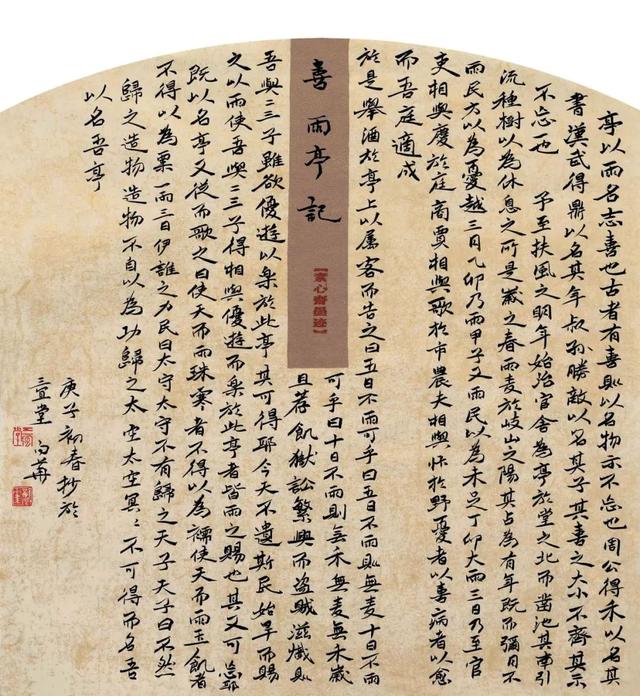 喜雨亭記
【素心齋墨迹】
亭以雨名志喜也古者有喜則以名物示不忘也周公得禾以名其
書漢武得鼎以名其年叔孫勝敵以名其子其喜之大小不齊其示
不忘也 予至扶風之明年始治官舍為亭於堂之北而鑿池其南引
流種樹以為休息之所是歲之春雨麥於岐山之陽其占為有年既而彌月不
雨民方以為憂越三月乙卯乃雨甲子又雨民以為未足丁卯大雨三日乃至官
吏相與慶於庭商賈相與歌於市農夫相與忭於野憂者以喜病者以愈
而吾庭適成
於是舉酒於亭上以屬客而告之曰五日不雨可乎曰五日不雨則無麥十日不雨
可乎曰十日不雨則無禾無麥無禾歲
且荐飢獄訟繁興而盜賊滋熾則
吾與二三子雖欲優遊以樂於此亭其可得耶今天不遺斯民始旱而賜
之以雨使吾與二三子得相與優遊而樂於此亭者皆雨之賜也其又可忘耶
既以名亭又從而歌之曰使天而雨珠寒者不得以為襦使天而雨玉飢者
不得以為粟一雨三日伊誰之力民曰太守太守不有歸之天子天子曰不然
歸之造物造物不自以為功歸之太空太空冥〻不可得而名吾
以名吾亭
庚子初春抄於
壹堂